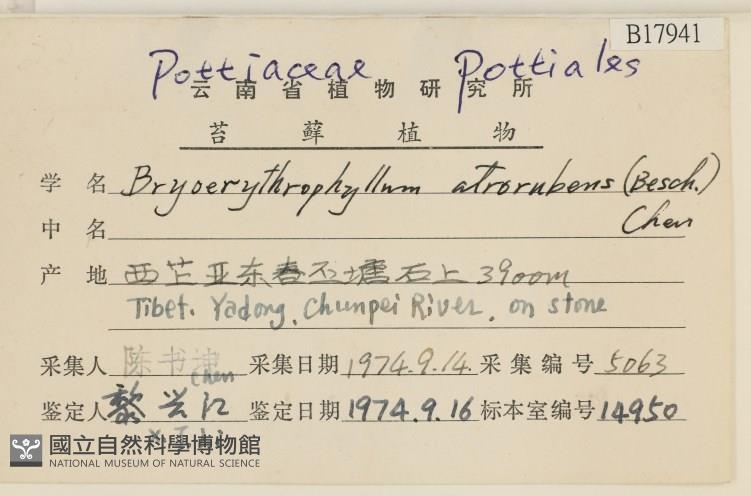 B17941
Pottiaceae Pottiales
云南省植物研究所
苔藓植物
学名 Bryoerythrophyllum atrorubens (Besch.)
中名 Chen
产地 西芷亚东春石塘石上 3900m
Tibet. Yadong. Chunpei River. on stone
采集人 陈书 采集日期 1974.9.14. 采集编号 5063
Chen
鉴定人 黎兴江 鉴定日期 1974.9.16 标本室编号 14950
國立自然科學博物館
NATIONAL MUSEUM OF NATURAL SCIENCE